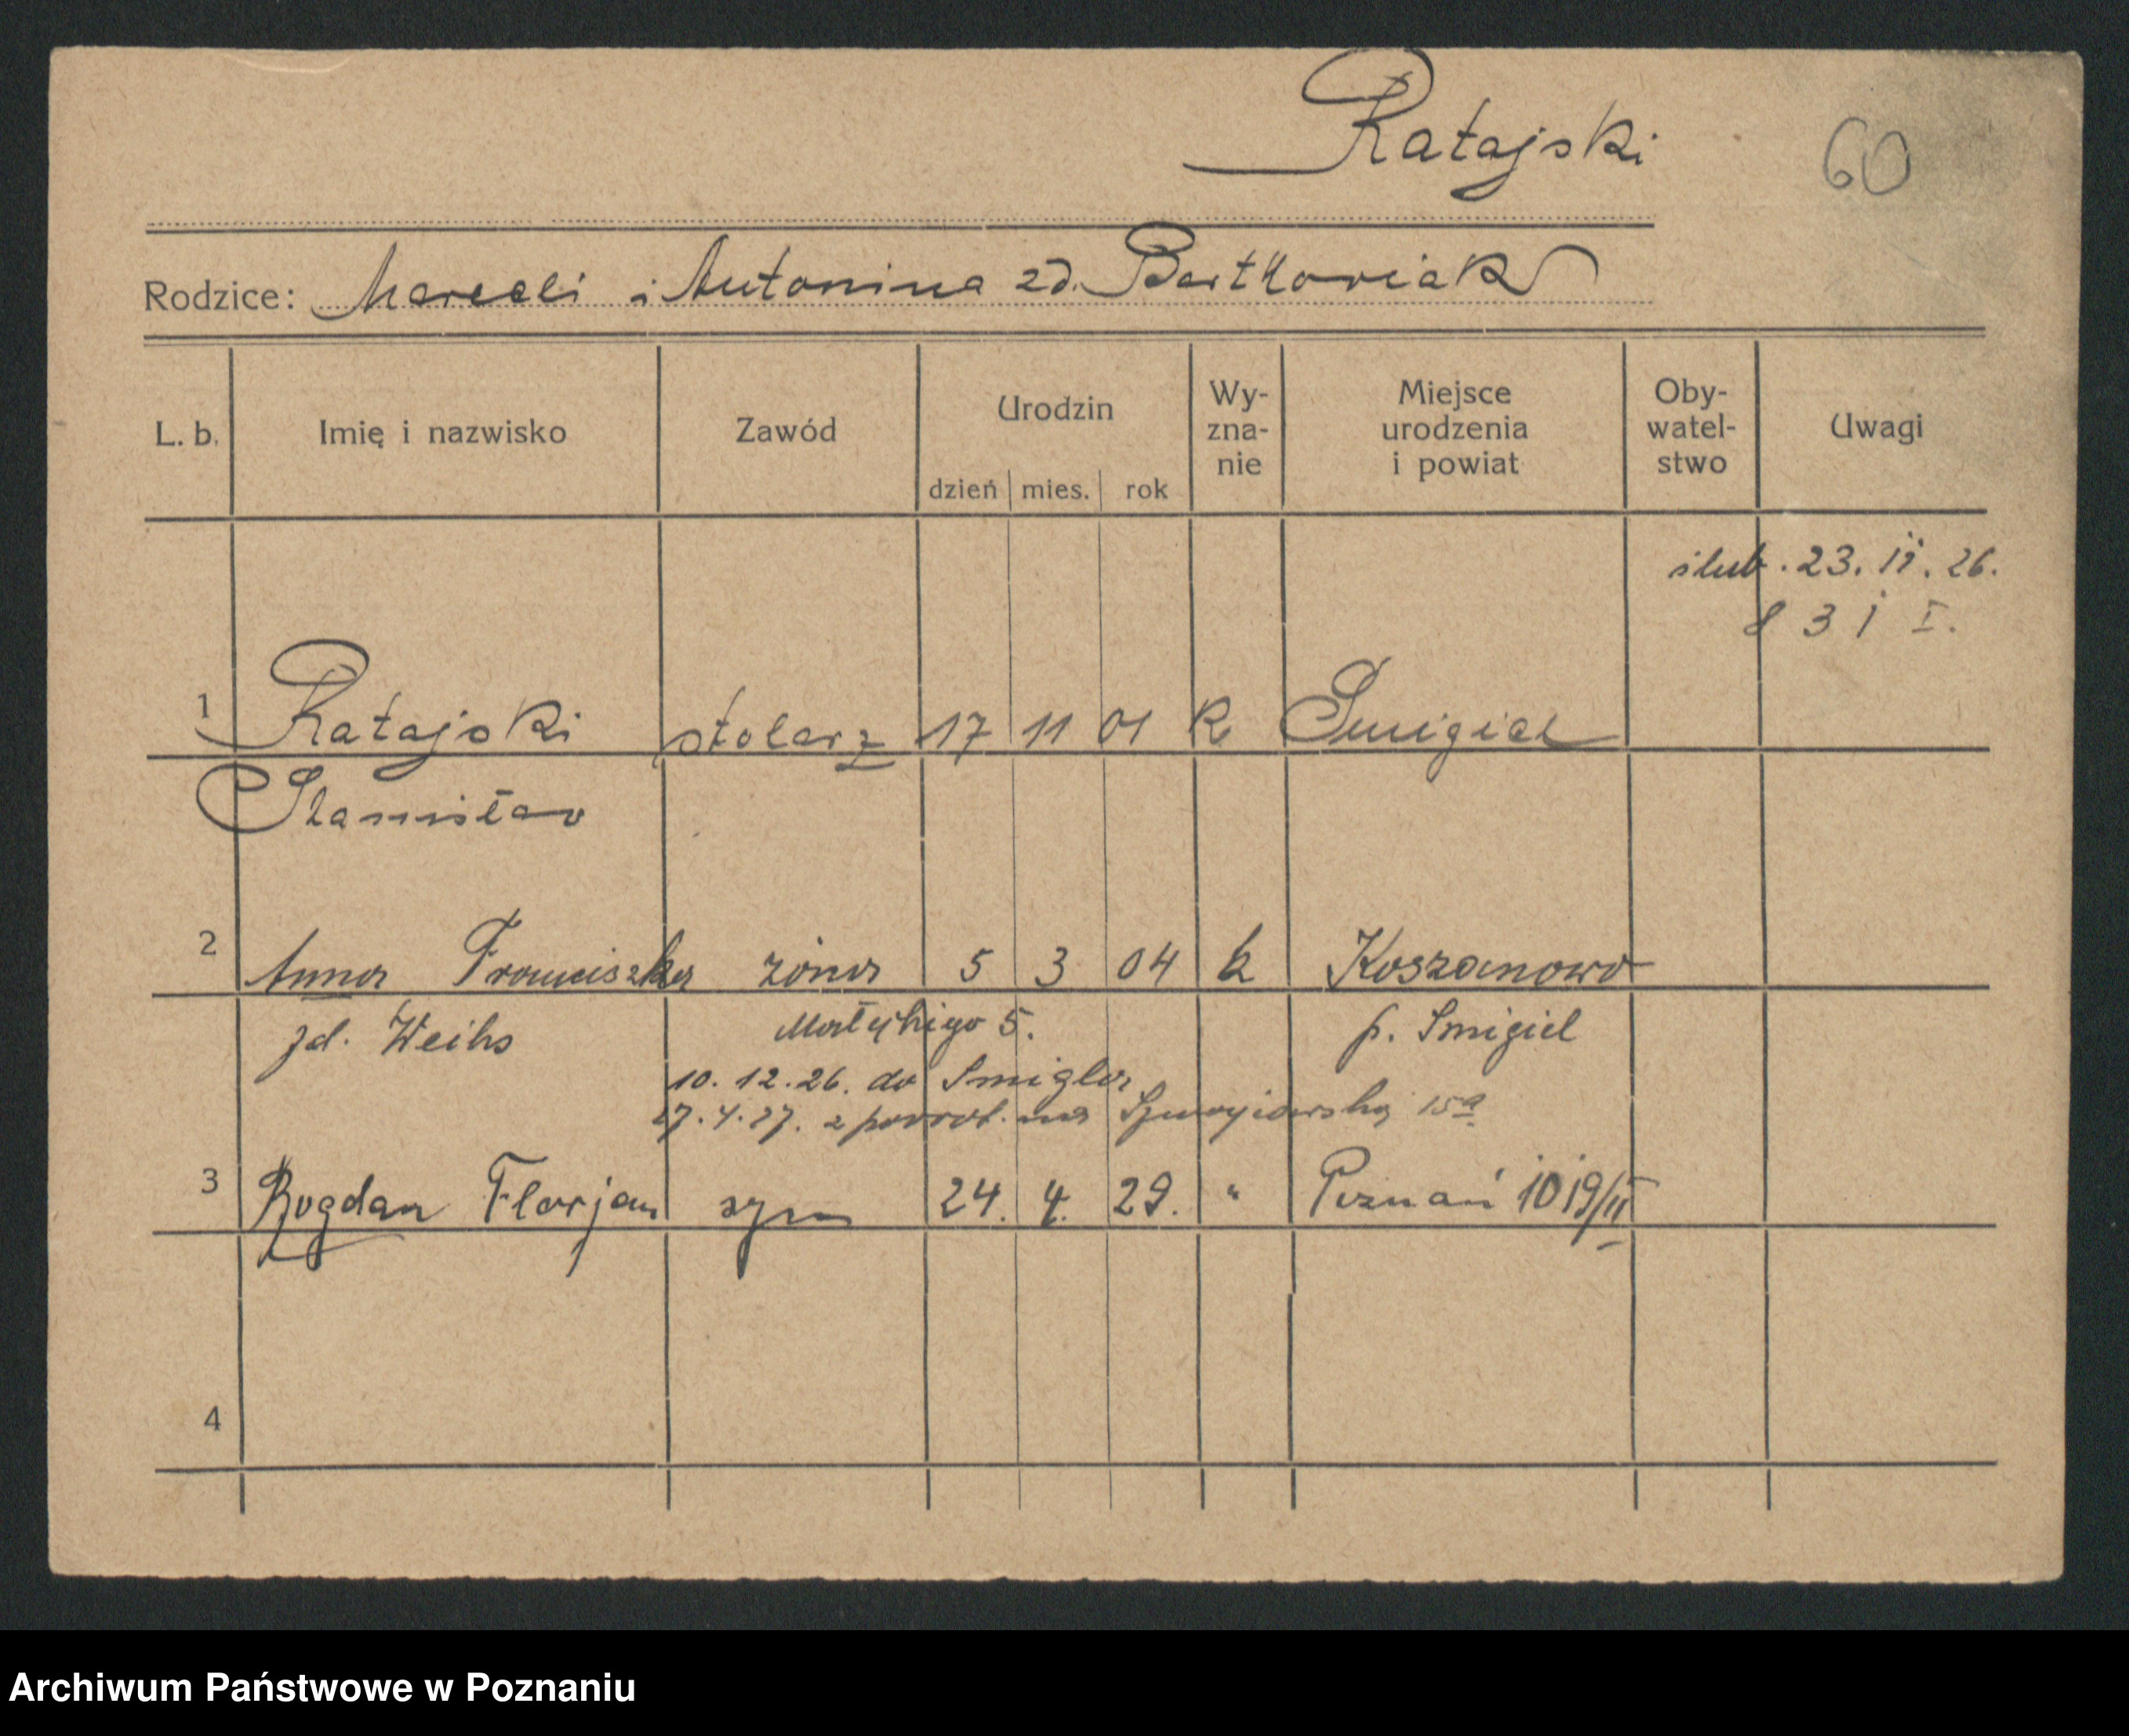 Ratajski
60
Rodzice: Marceli i Antonina zd. Bartkowiak
L. b. Imię i nazwisko Zawód Urodzin dzień mies. rok Wy-zna-nie Miejsce urodzenia i powiat Oby-watel-stwo Uwagi
ślub. 23. 11. 26.
831 I.
1 Ratajski stolarz 17 11 01 k Śmigiel
Stanisław
2 Anna Franciszka żona 5 3 04 k Koszanowo
zd. Weihs Małeckiego 5. p. Smigiel
10. 12. 26. do Smigla
27. 4. 27. z powrot. na 15a
3 Bogdan Florjan syn 24. 4. 29. " Poznań 1019/II
4
Archiwum Państwowe w Poznaniu